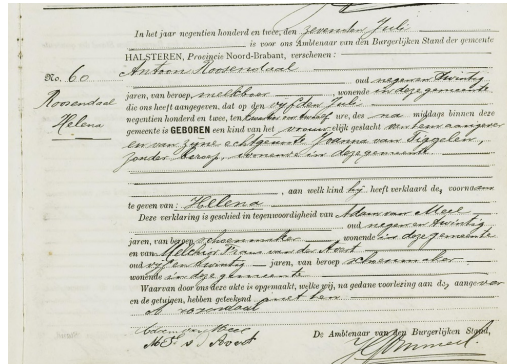 In het jaar negentien honderd en twee, den zevenden Juli
is voor ons Ambtenaar van den Burgerlijken Stand der gemeente
HALSTEREN, Provincie Noord-Brabant, verschenen:
No. 60
Antoon Roosendaal
oud negen en twintig
jaren, van beroep, melkboer, wonende in deze gemeente
die ons heeft aangegeven, dat op den vyfden Juli
Roosendaal
Helena
negentien honderd en twee, ten kwartier over twaalf ure, des na middags binnen deze
gemeente is GEBOREN een kind van het vrouwelijk geslacht van hem aangever
en van zijne echtgenoote Joanna van Tiggelen,
zonder beroep, wonende in deze gemeente
, aan welk kind hij heeft verklaard de voornaam
te geven van: Helena
Deze verklaring is geschied in tegenwoordigheid van Adam van Meel
oud negen en twintig
jaren, van beroep schoenmaker wonende in deze gemeente
en van Melchior Frans van der Avert
oud vyf en twintig jaren, van beroep schoenmaker
wonende in deze gemeente
Waarvan door ons deze akte is opgemaakt, welke wij, na gedane voorlezing aan den aangever
en de getuigen, hebben geteekend met hen
rosendaal
Adam van Meel
De Ambtenaar van den Burgerlijken Stand,